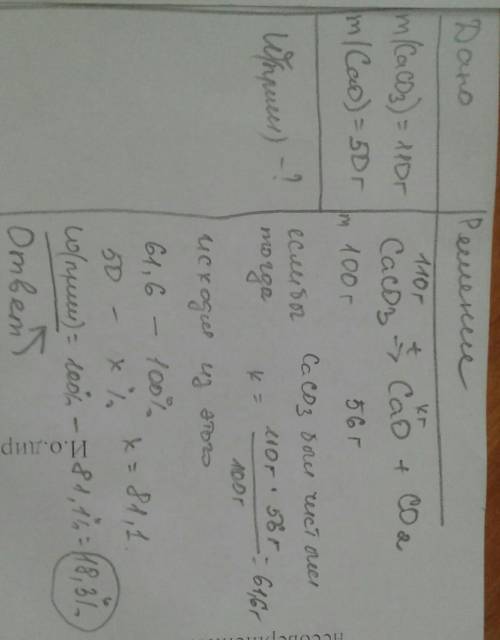 Дано
m(CaCO3) = 110г
m(CaO) = 50г
W(прим) - ?
Решение
110г t xг
CaCO3 => CaO + CO2
m 100г 56г
если бы CaCO3 был чистым
тогда x = 110г · 56г / 100г = 61,6г
исходя из этого
61,6 - 100%
50 - x% x = 81,1
ω(прим) = 100% - 81,1% = 18,3%
Ответ
И.о.дир